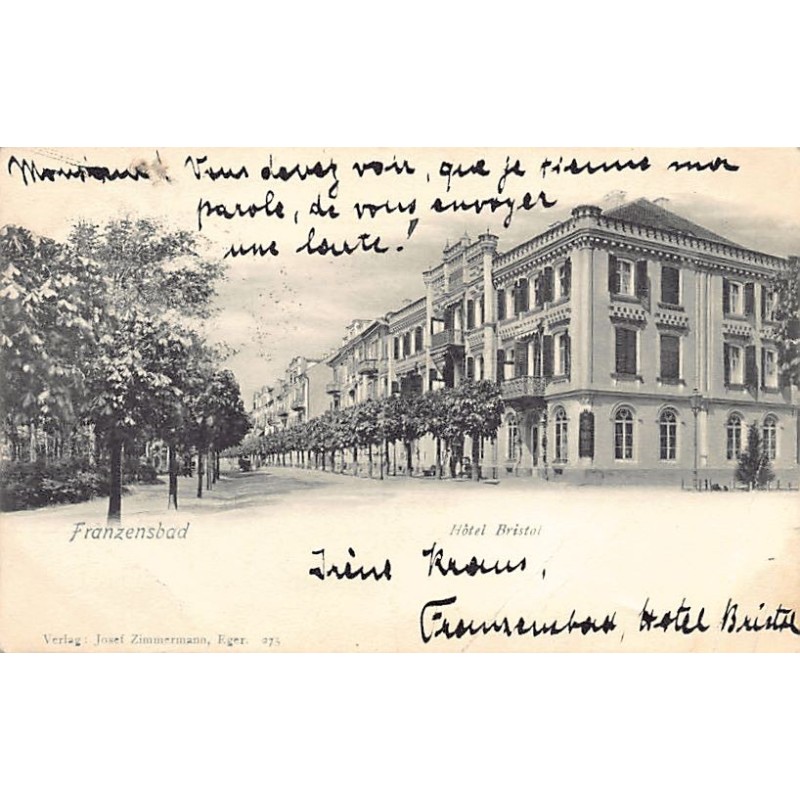 Monsieur! Vous devez voir, que je tienne ma
parole, de vous envoyer
une carte!
Franzensbad
Hôtel Bristol
Irène Kraus,
Franzensbad, Hotel Bristol
Verlag: Josef Zimmermann, Eger. 275